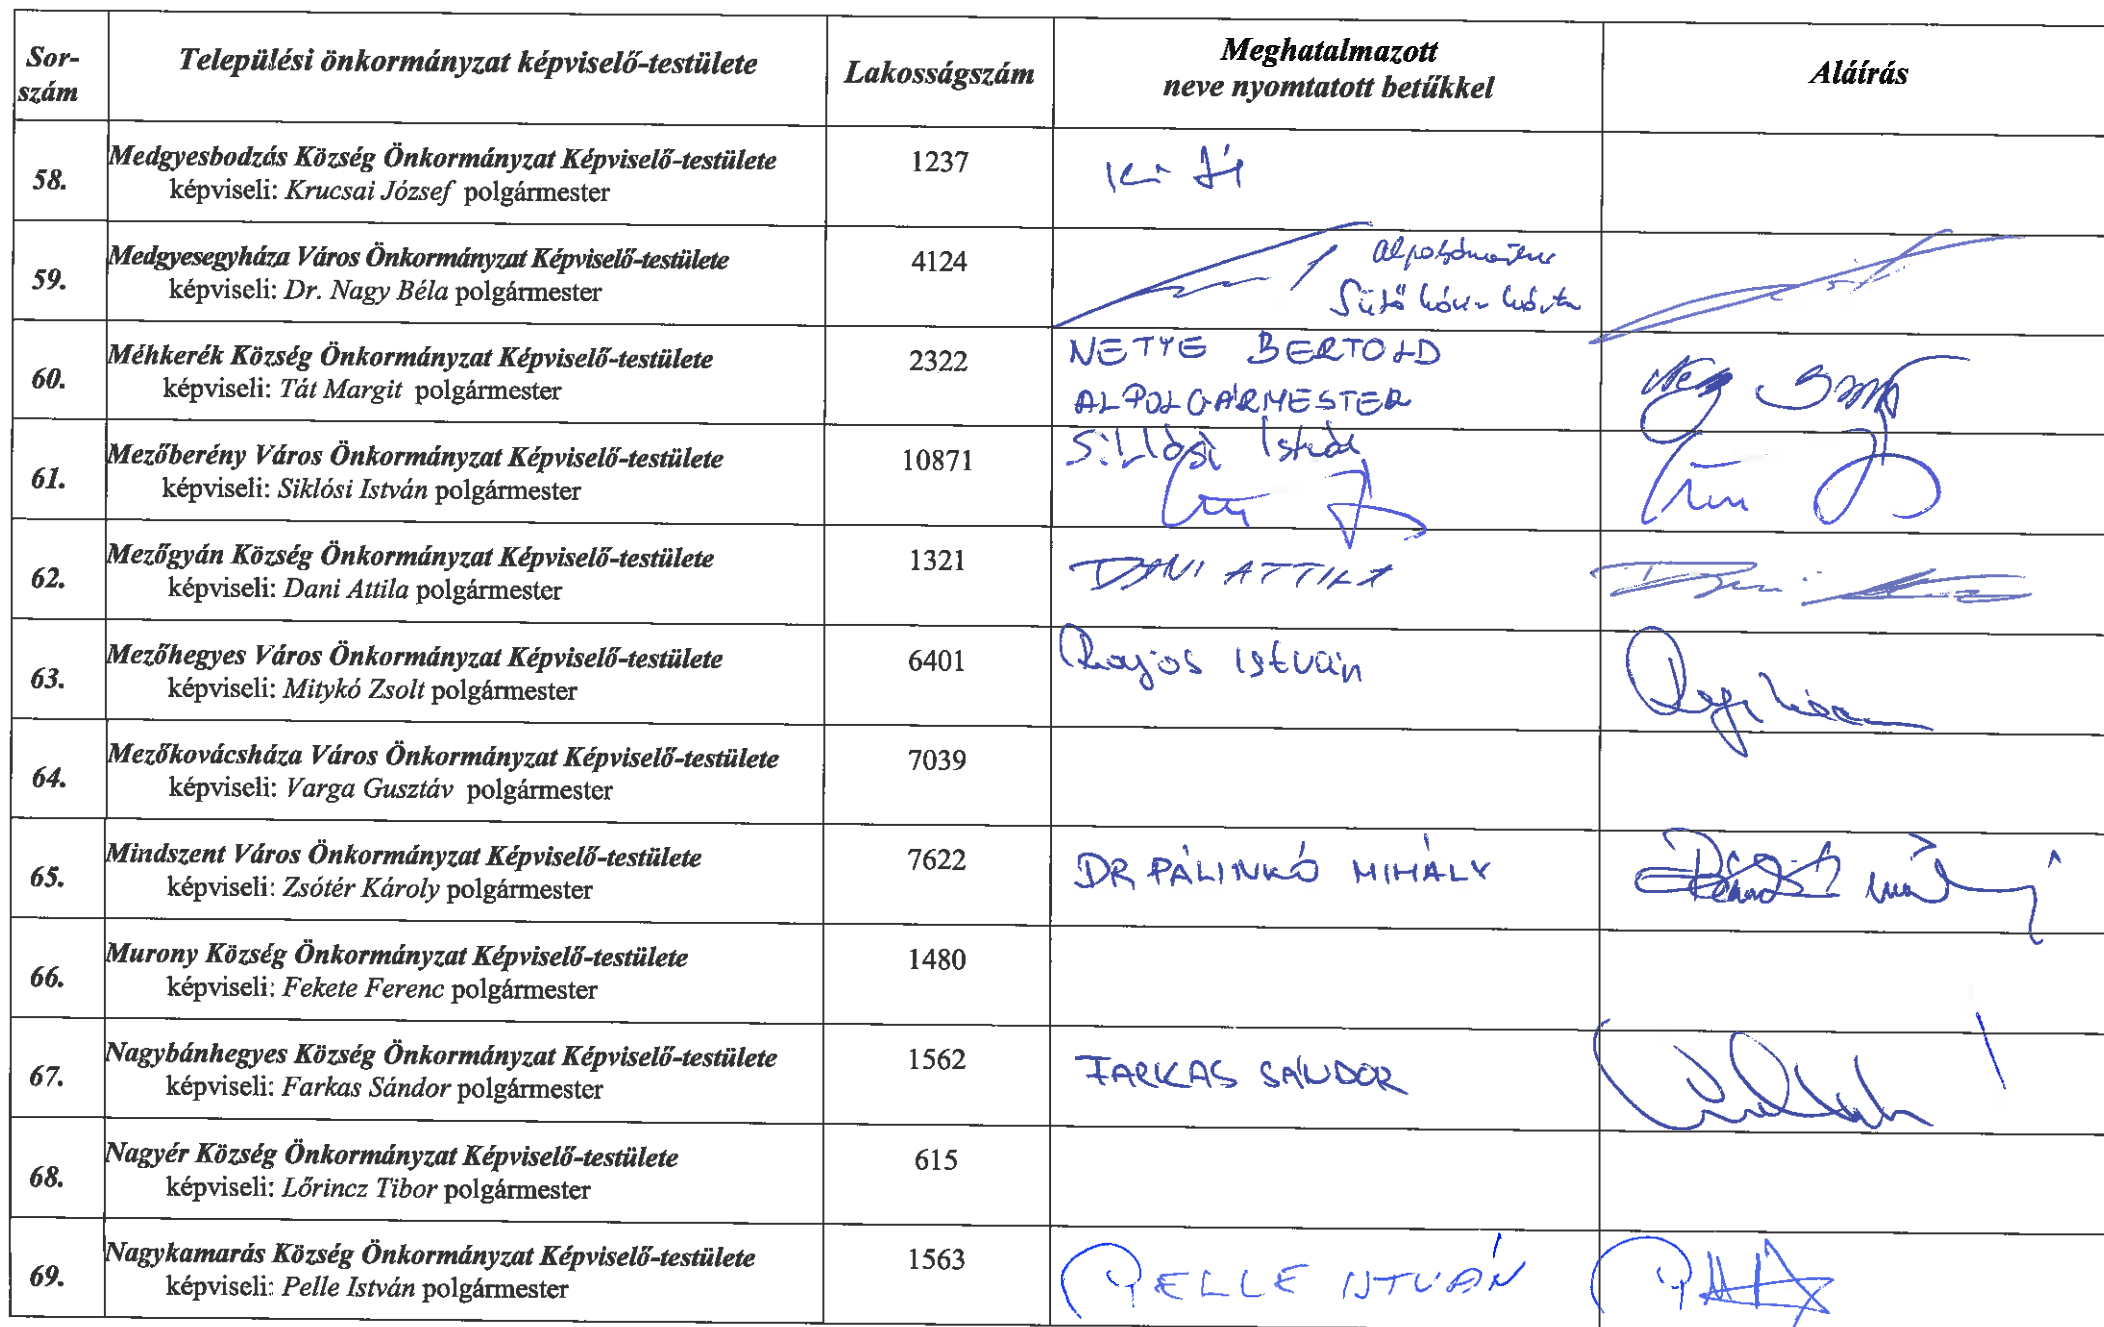 Sor-
szám
Települési önkormányzat képviselő-testülete
Lakosságszám
Meghatalmazott
neve nyomtatott betűkkel
Aláírás
58.
Medgyesbodzás Község Önkormányzat Képviselő-testülete
képviseli: Krucsai József polgármester
1237
59.
Medgyesegyháza Város Önkormányzat Képviselő-testülete
képviseli: Dr. Nagy Béla polgármester
4124
60.
Méhkerék Község Önkormányzat Képviselő-testülete
képviseli: Tát Margit polgármester
2322
NETYE BERTOLD
ALPOLGÁRMESTER
61.
Mezőberény Város Önkormányzat Képviselő-testülete
képviseli: Siklósi István polgármester
10871
62.
Mezőgyán Község Önkormányzat Képviselő-testülete
képviseli: Dani Attila polgármester
1321
DANI ATTILA
63.
Mezőhegyes Város Önkormányzat Képviselő-testülete
képviseli: Mitykó Zsolt polgármester
6401
István
64.
Mezőkovácsháza Város Önkormányzat Képviselő-testülete
képviseli: Varga Gusztáv polgármester
7039
65.
Mindszent Város Önkormányzat Képviselő-testülete
képviseli: Zsótér Károly polgármester
7622
DR PÁLINKÓ MIHÁLY
66.
Murony Község Önkormányzat Képviselő-testülete
képviseli: Fekete Ferenc polgármester
1480
67.
Nagybánhegyes Község Önkormányzat Képviselő-testülete
képviseli: Farkas Sándor polgármester
1562
FARKAS SÁNDOR
68.
Nagyér Község Önkormányzat Képviselő-testülete
képviseli: Lőrincz Tibor polgármester
615
69.
Nagykamarás Község Önkormányzat Képviselő-testülete
képviseli: Pelle István polgármester
1563
PELLE ISTVÁN